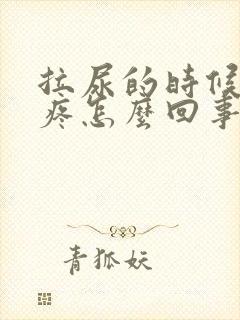 拉尿的時候
疼怎麼回事
青狐妖